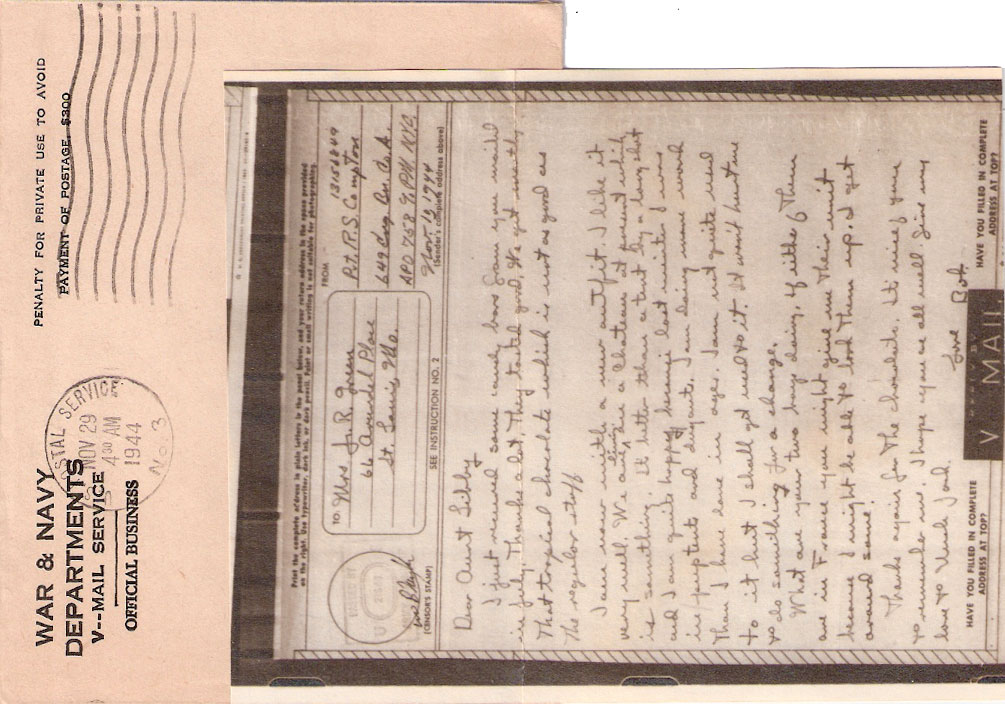 PENALTY FOR PRIVATE USE TO AVOID
PAYMENT OF POSTAGE, $300
POSTAL SERVICE
NOV 29
4 30 AM
1944
No 3
WAR & NAVY
DEPARTMENTS
V--MAIL SERVICE
OFFICIAL BUSINESS
Print the complete address in plain letters in the panel below, and your return address in the space provided
on the right. Use typewriter, dark ink, or dark pencil. Faint or small writing is not suitable for photographing.
TO: Mrs. J. R. Green
66 Arundel Place
St. Louis, Mo.
FROM
Pvt. R. S. Compton 13156849
649 Engr. Bn. Co. A.
APO 758 % PM NYC
Nov. 13 1944
(Sender's complete address above)
(CENSOR'S STAMP)
SEE INSTRUCTION NO. 2
Dear Aunt Libby
I just received some candy bars from you mailed
in July. Thanks a lot. They tasted good. We get mostly
that tropical chocolate which is not as good as
the regular stuff.
I am now with a new outfit. I like it
very well. We are living in a chateau at present which
is something. It beats a tent by a long shot
and I am quite happy because last winter I was
in pup tents and dugouts. I am doing more work
than I have done in ages. I am not quite used
to it but I shall get used to it. It won't hurt me
to do something for a change.
What are your two boys doing, if either of them
are in France you might give me their unit
because I might be able to look them up. I get
around some.
Thanks again for the chocolate. It's nice of you
to remember me. I hope you are all well. Give my
love to Uncle Jack.
Love
Bob
HAVE YOU FILLED IN COMPLETE
ADDRESS AT TOP?
V MAIL
HAVE YOU FILLED IN COMPLETE
ADDRESS AT TOP?